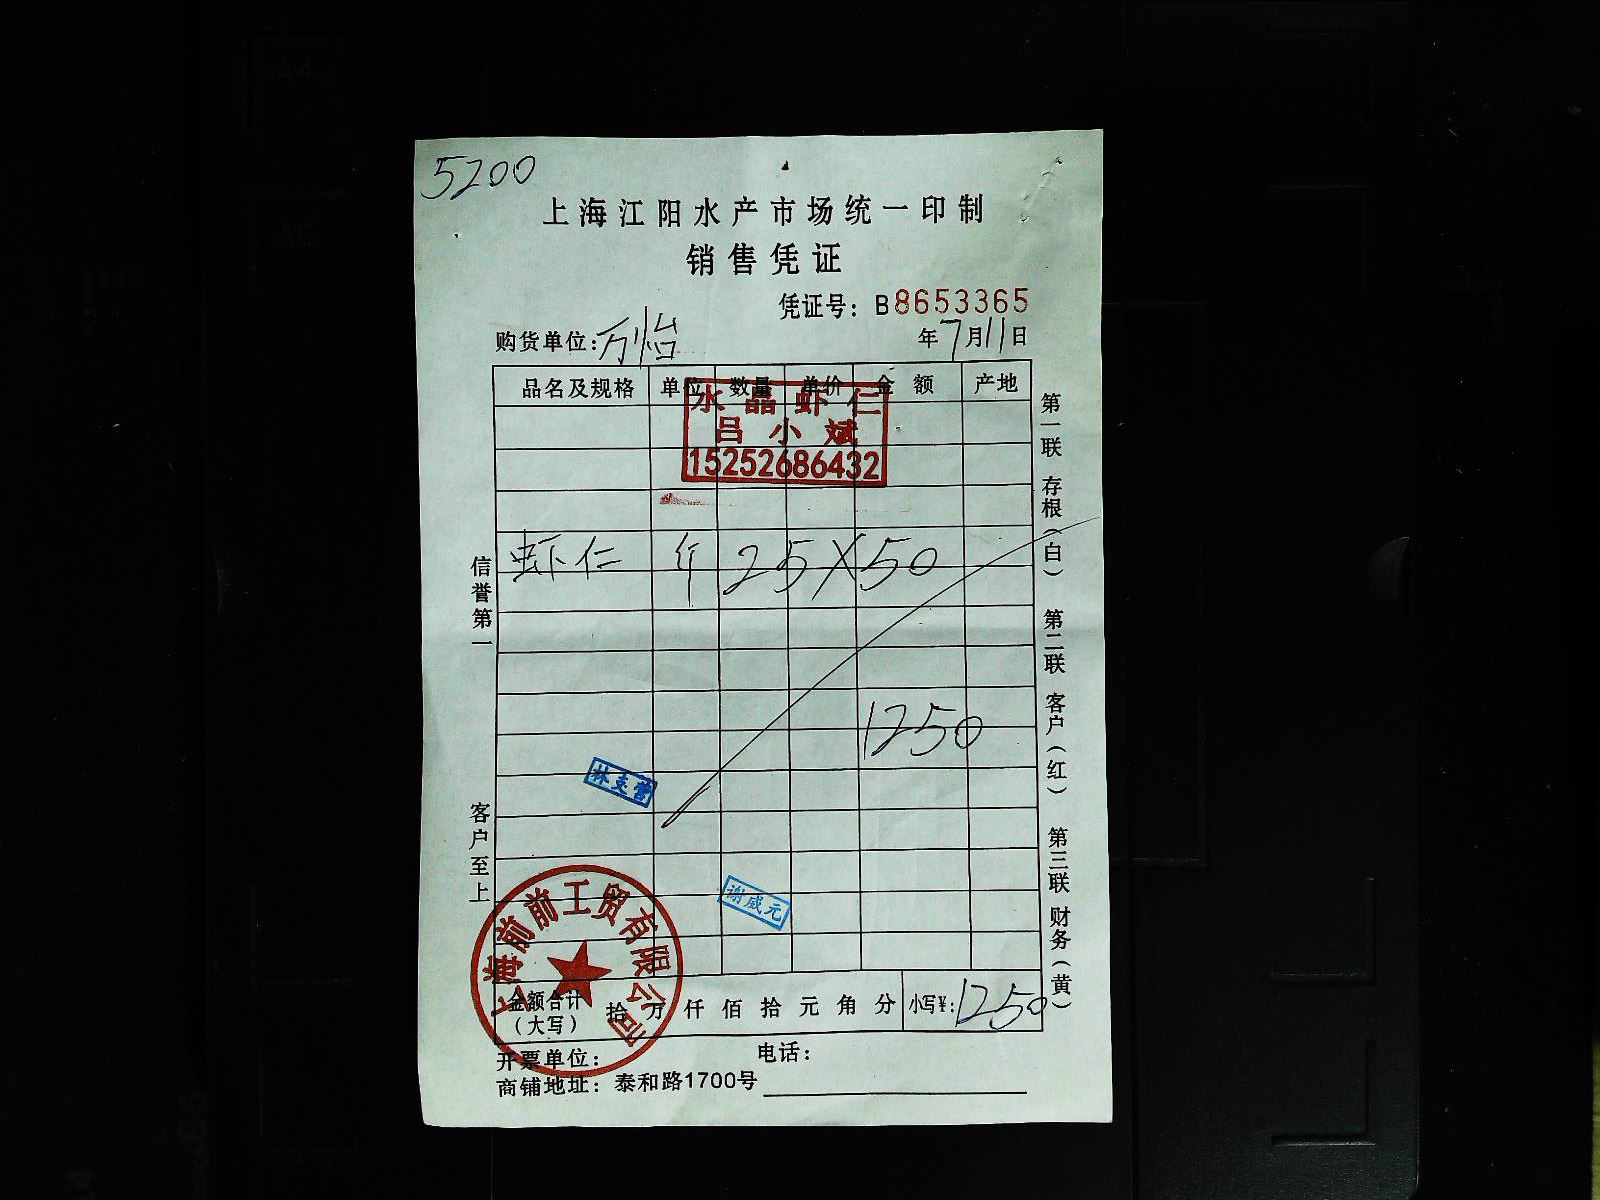 5200
上海江阳水产市场统一印制
销售凭证
凭证号：B8653365
购货单位：万怡 年7月11日
品名及规格 单位 数量 单价 金额 产地
水晶虾仁
吕小斌
15252686432
虾仁 25×50
1250
谢威元
上海前前工贸有限公司
金额合计（大写） 拾 万 仟 佰 拾 元 角 分 小写¥：1250
开票单位： 电话：
商铺地址：泰和路1700号
信誉第一 客户至上
第一联 存根（白） 第二联 客户（红） 第三联 财务（黄）